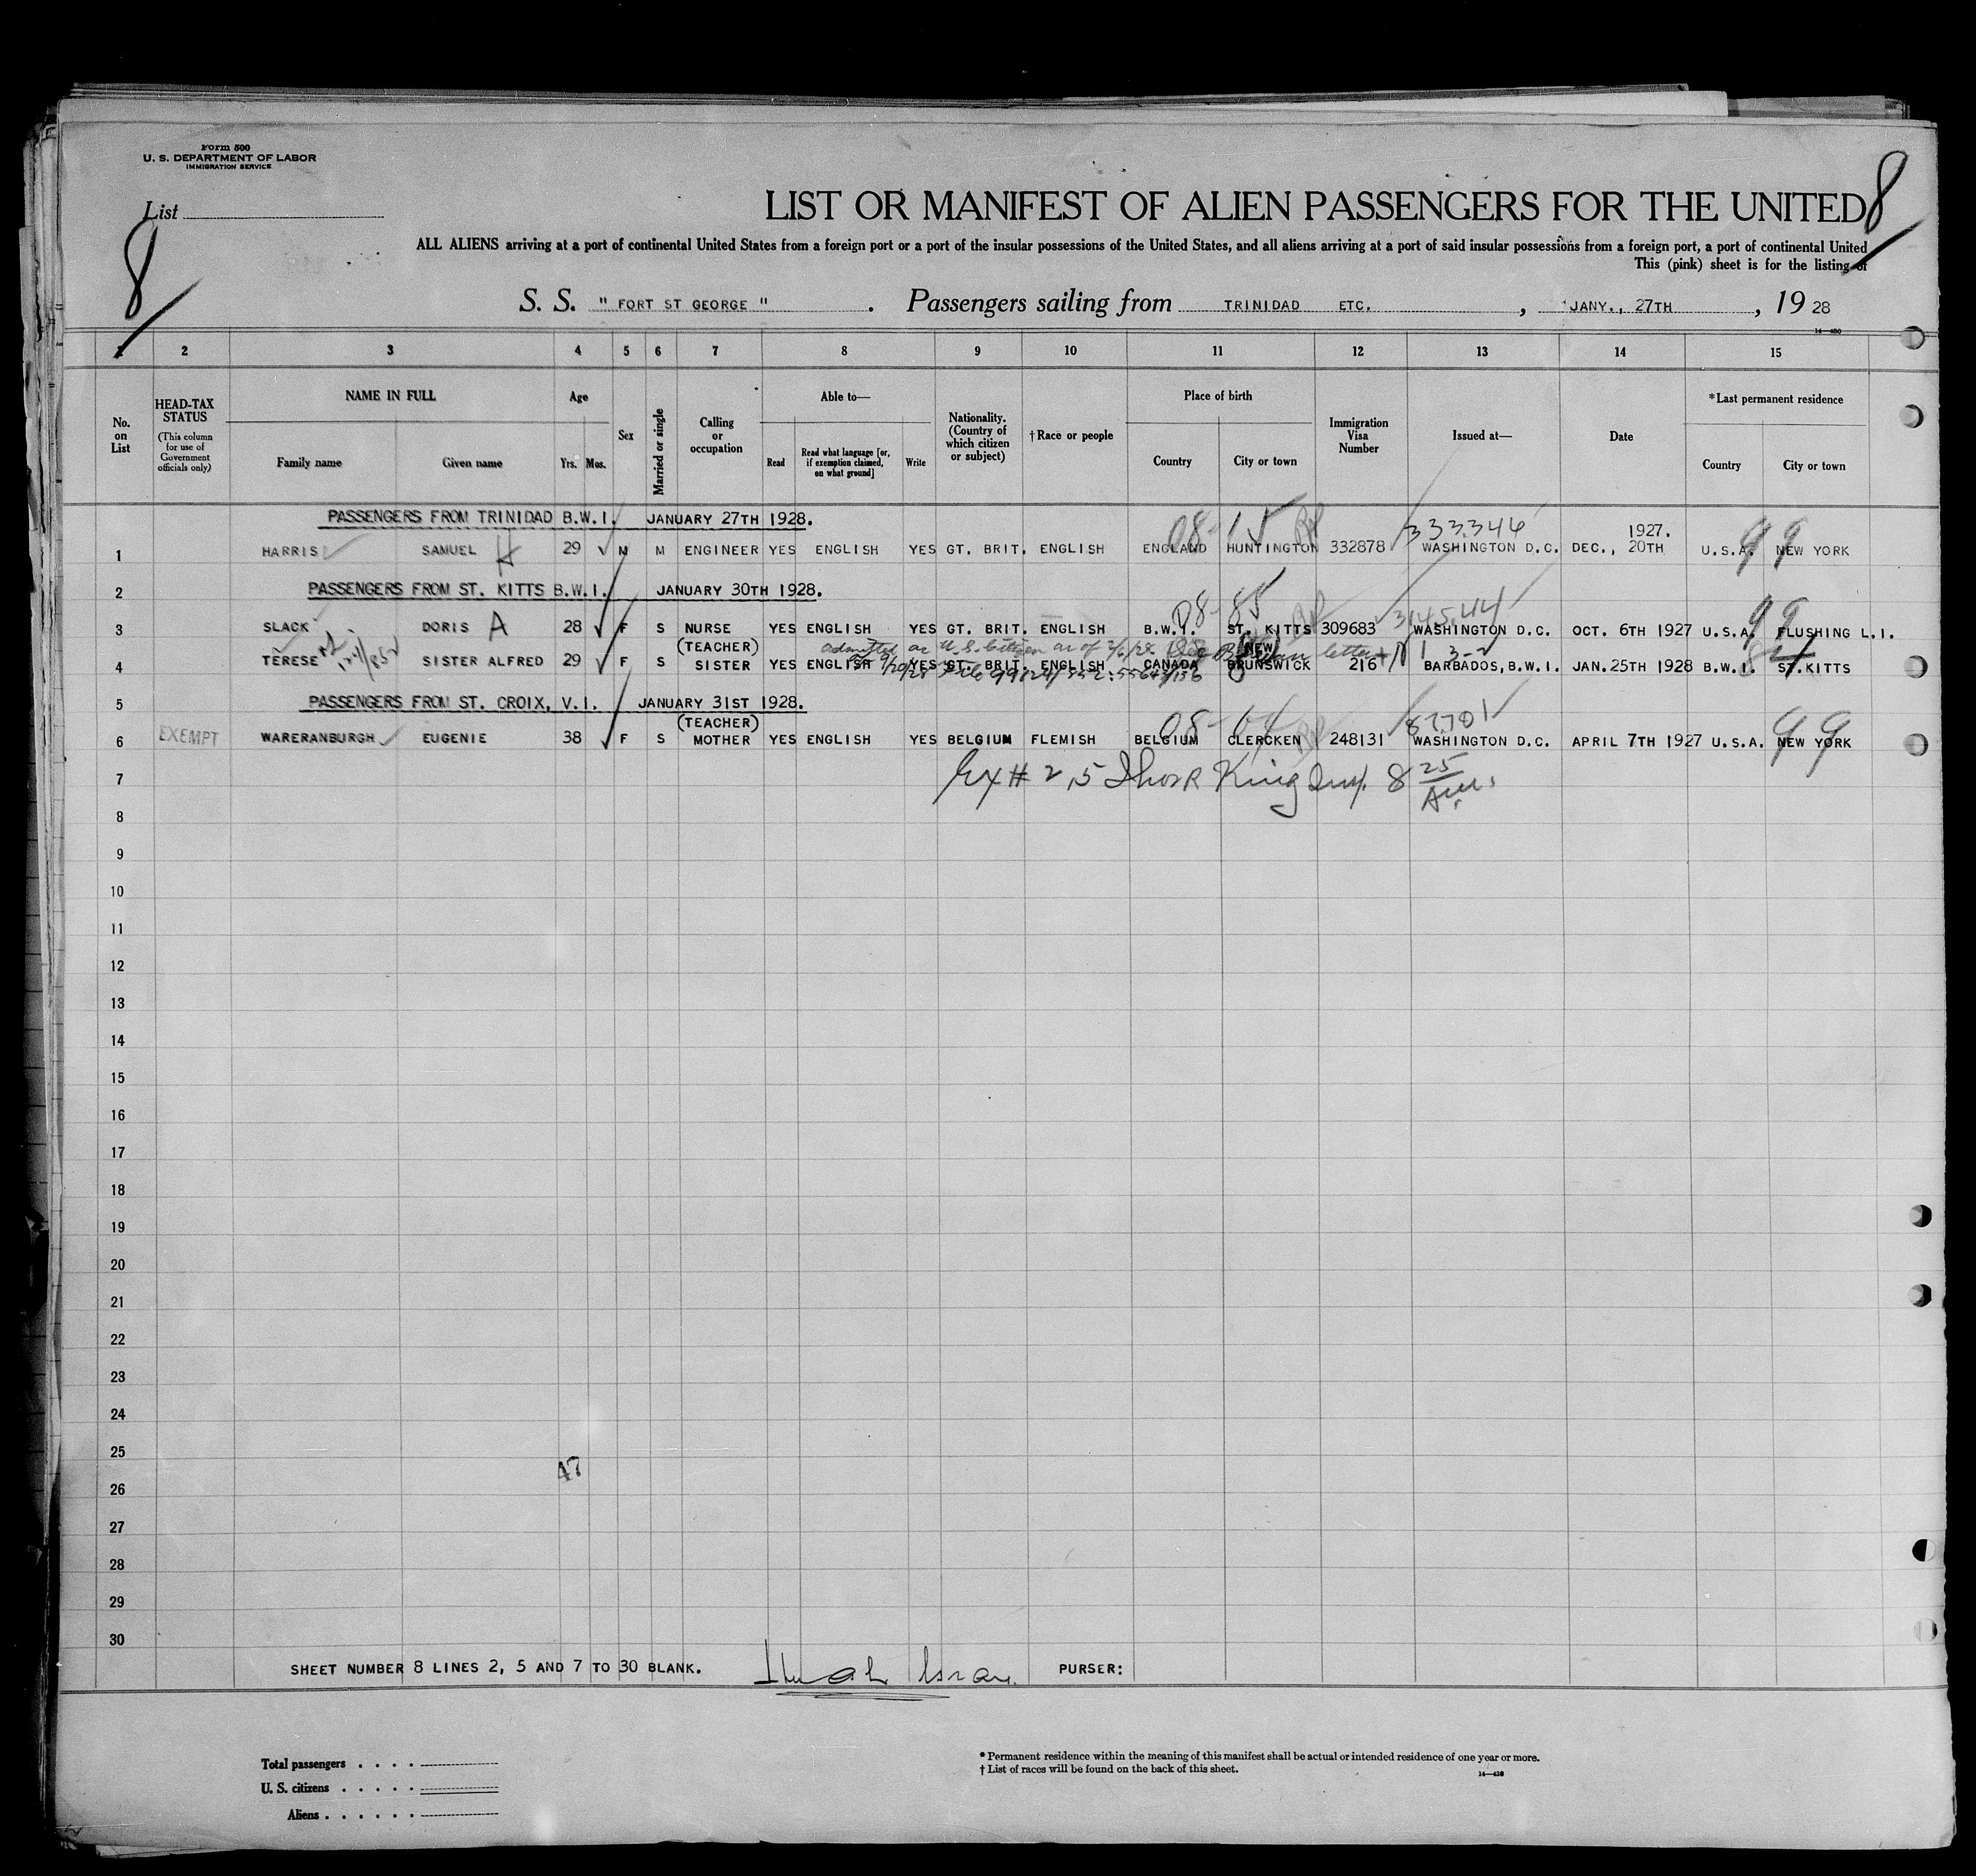 Form 500
U. S. DEPARTMENT OF LABOR
IMMIGRATION SERVICE
List
8
8
LIST OR MANIFEST OF ALIEN PASSENGERS FOR THE UNITED
ALL ALIENS arriving at a port of continental United States from a foreign port or a port of the insular possessions of the United States, and all aliens arriving at a port of said insular possessions from a foreign port, a port of continental United
This (pink) sheet is for the listing of
S. S. " FORT ST GEORGE " . Passengers sailing from TRINIDAD ETC. , JANY., 27TH , 19 28
1 2 3 4 5 6 7 8 9 10 11 12 13 14 15
No. on List
HEAD-TAX STATUS (This column for use of Government officials only)
NAME IN FULL
Family name Given name
Age
Yrs. Mos.
Sex
Married or single
Calling or occupation
Able to—
Read
Read what language [or, if exemption claimed, on what ground]
Write
Nationality. (Country of which citizen or subject)
† Race or people
Place of birth
Country City or town
Immigration Visa Number
Issued at—
Date
*Last permanent residence
Country City or town
PASSENGERS FROM TRINIDAD B.W.I. JANUARY 27TH 1928.
08- 15 333346 1927. 99
1 HARRIS SAMUEL 29 M M ENGINEER YES ENGLISH YES GT. BRIT. ENGLISH ENGLAND HUNTINGTON 332878 WASHINGTON D.C. DEC., 20TH U.S.A. NEW YORK
2 PASSENGERS FROM ST. KITTS B.W.I. JANUARY 30TH 1928.
08- 85 314544 99
3 SLACK DORIS A 28 F S NURSE YES ENGLISH YES GT. BRIT. ENGLISH B.W.I. ST. KITTS 309683 WASHINGTON D.C. OCT. 6TH 1927 U.S.A. FLUSHING L.I.
(TEACHER) admitted as U.S. Citizen as of letter NEW 3-2
4 TERESE SISTER ALFRED 29 F S SISTER YES ENGLISH YES GT. BRIT. ENGLISH CANADA BRUNSWICK 216 BARBADOS, B.W.I. JAN.25TH 1928 B.W.I. ST.KITTS
9/20/28 File
5 PASSENGERS FROM ST. CROIX, V.I. JANUARY 31ST 1928.
(TEACHER) 08- 99
6 EXEMPT WARERANBURGH EUGENIE 38 F S MOTHER YES ENGLISH YES BELGIUM FLEMISH BELGIUM CLERCKEN 248131 WASHINGTON D.C. APRIL 7TH 1927 U.S.A. NEW YORK
7 King 8 25
8
9
10
11
12
13
14
15
16
17
18
19
20
21
22
23
24
25
47
26
27
28
29
30
SHEET NUMBER 8 LINES 2, 5 AND 7 TO 30 BLANK. PURSER:
Total passengers . . . .
U. S. citizens . . . . .
Aliens . . . . . .
* Permanent residence within the meaning of this manifest shall be actual or intended residence of one year or more.
† List of races will be found on the back of this sheet.